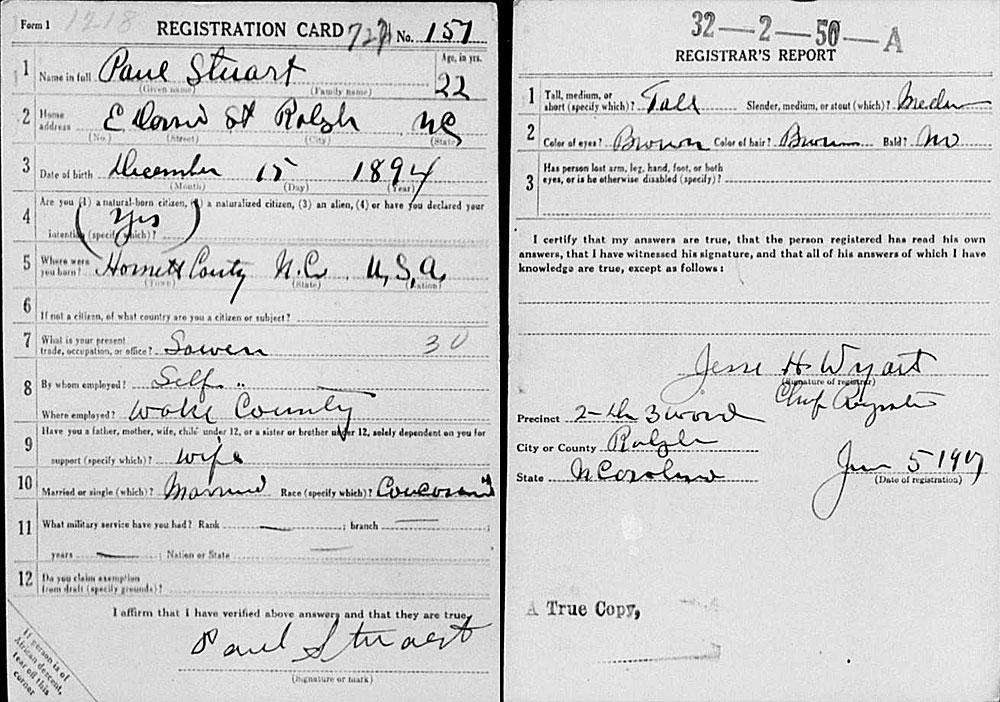 Form 1 1218 REGISTRATION CARD No. 157
1 Name in full Paul Stuart Age, in yrs. 22
(Given name) (Family name)
2 Home address E St Ralgh NC
(No.) (Street) (City) (State)
3 Date of birth December 15 1894
(Month) (Day) (Year)
4 Are you (1) a natural-born citizen, (2) a naturalized citizen, (3) an alien, (4) or have you declared your
intention (specify which)? (Yes)
5 Where were you born? County N.C. U,S,A,
(Town) (State) (Nation)
6 If not a citizen, of what country are you a citizen or subject?
7 What is your present trade, occupation, or office? 30
8 By whom employed? Self
Where employed? Wake County
9 Have you a father, mother, wife, child under 12, or a sister or brother under 12, solely dependent on you for
support (specify which)? Wife
10 Married or single (which)? Married Race (specify which)?
11 What military service have you had? Rank ; branch ;
years ; Nation or State
12 Do you claim exemption
from draft (specify grounds)?
I affirm that I have verified above answers and that they are true.
Paul Stuart
(Signature or mark)
If person is of
African descent,
tear off this
corner
32—2—50—A
REGISTRAR'S REPORT
1 Tall, medium, or short (specify which)? Tall Slender, medium, or stout (which)?
2 Color of eyes? Brown Color of hair? Brown Bald? No
3 Has person lost arm, leg, hand, foot, or both
eyes, or is he otherwise disabled (specify)?
I certify that my answers are true, that the person registered has read his own
answers, that I have witnessed his signature, and that all of his answers of which I have
knowledge are true, except as follows:
Jesse H Wyatt
(Signature of registrar)
Precinct 2-
City or County Ralgh
State N Carolina Jun 5 1917
(Date of registration)
A True Copy,